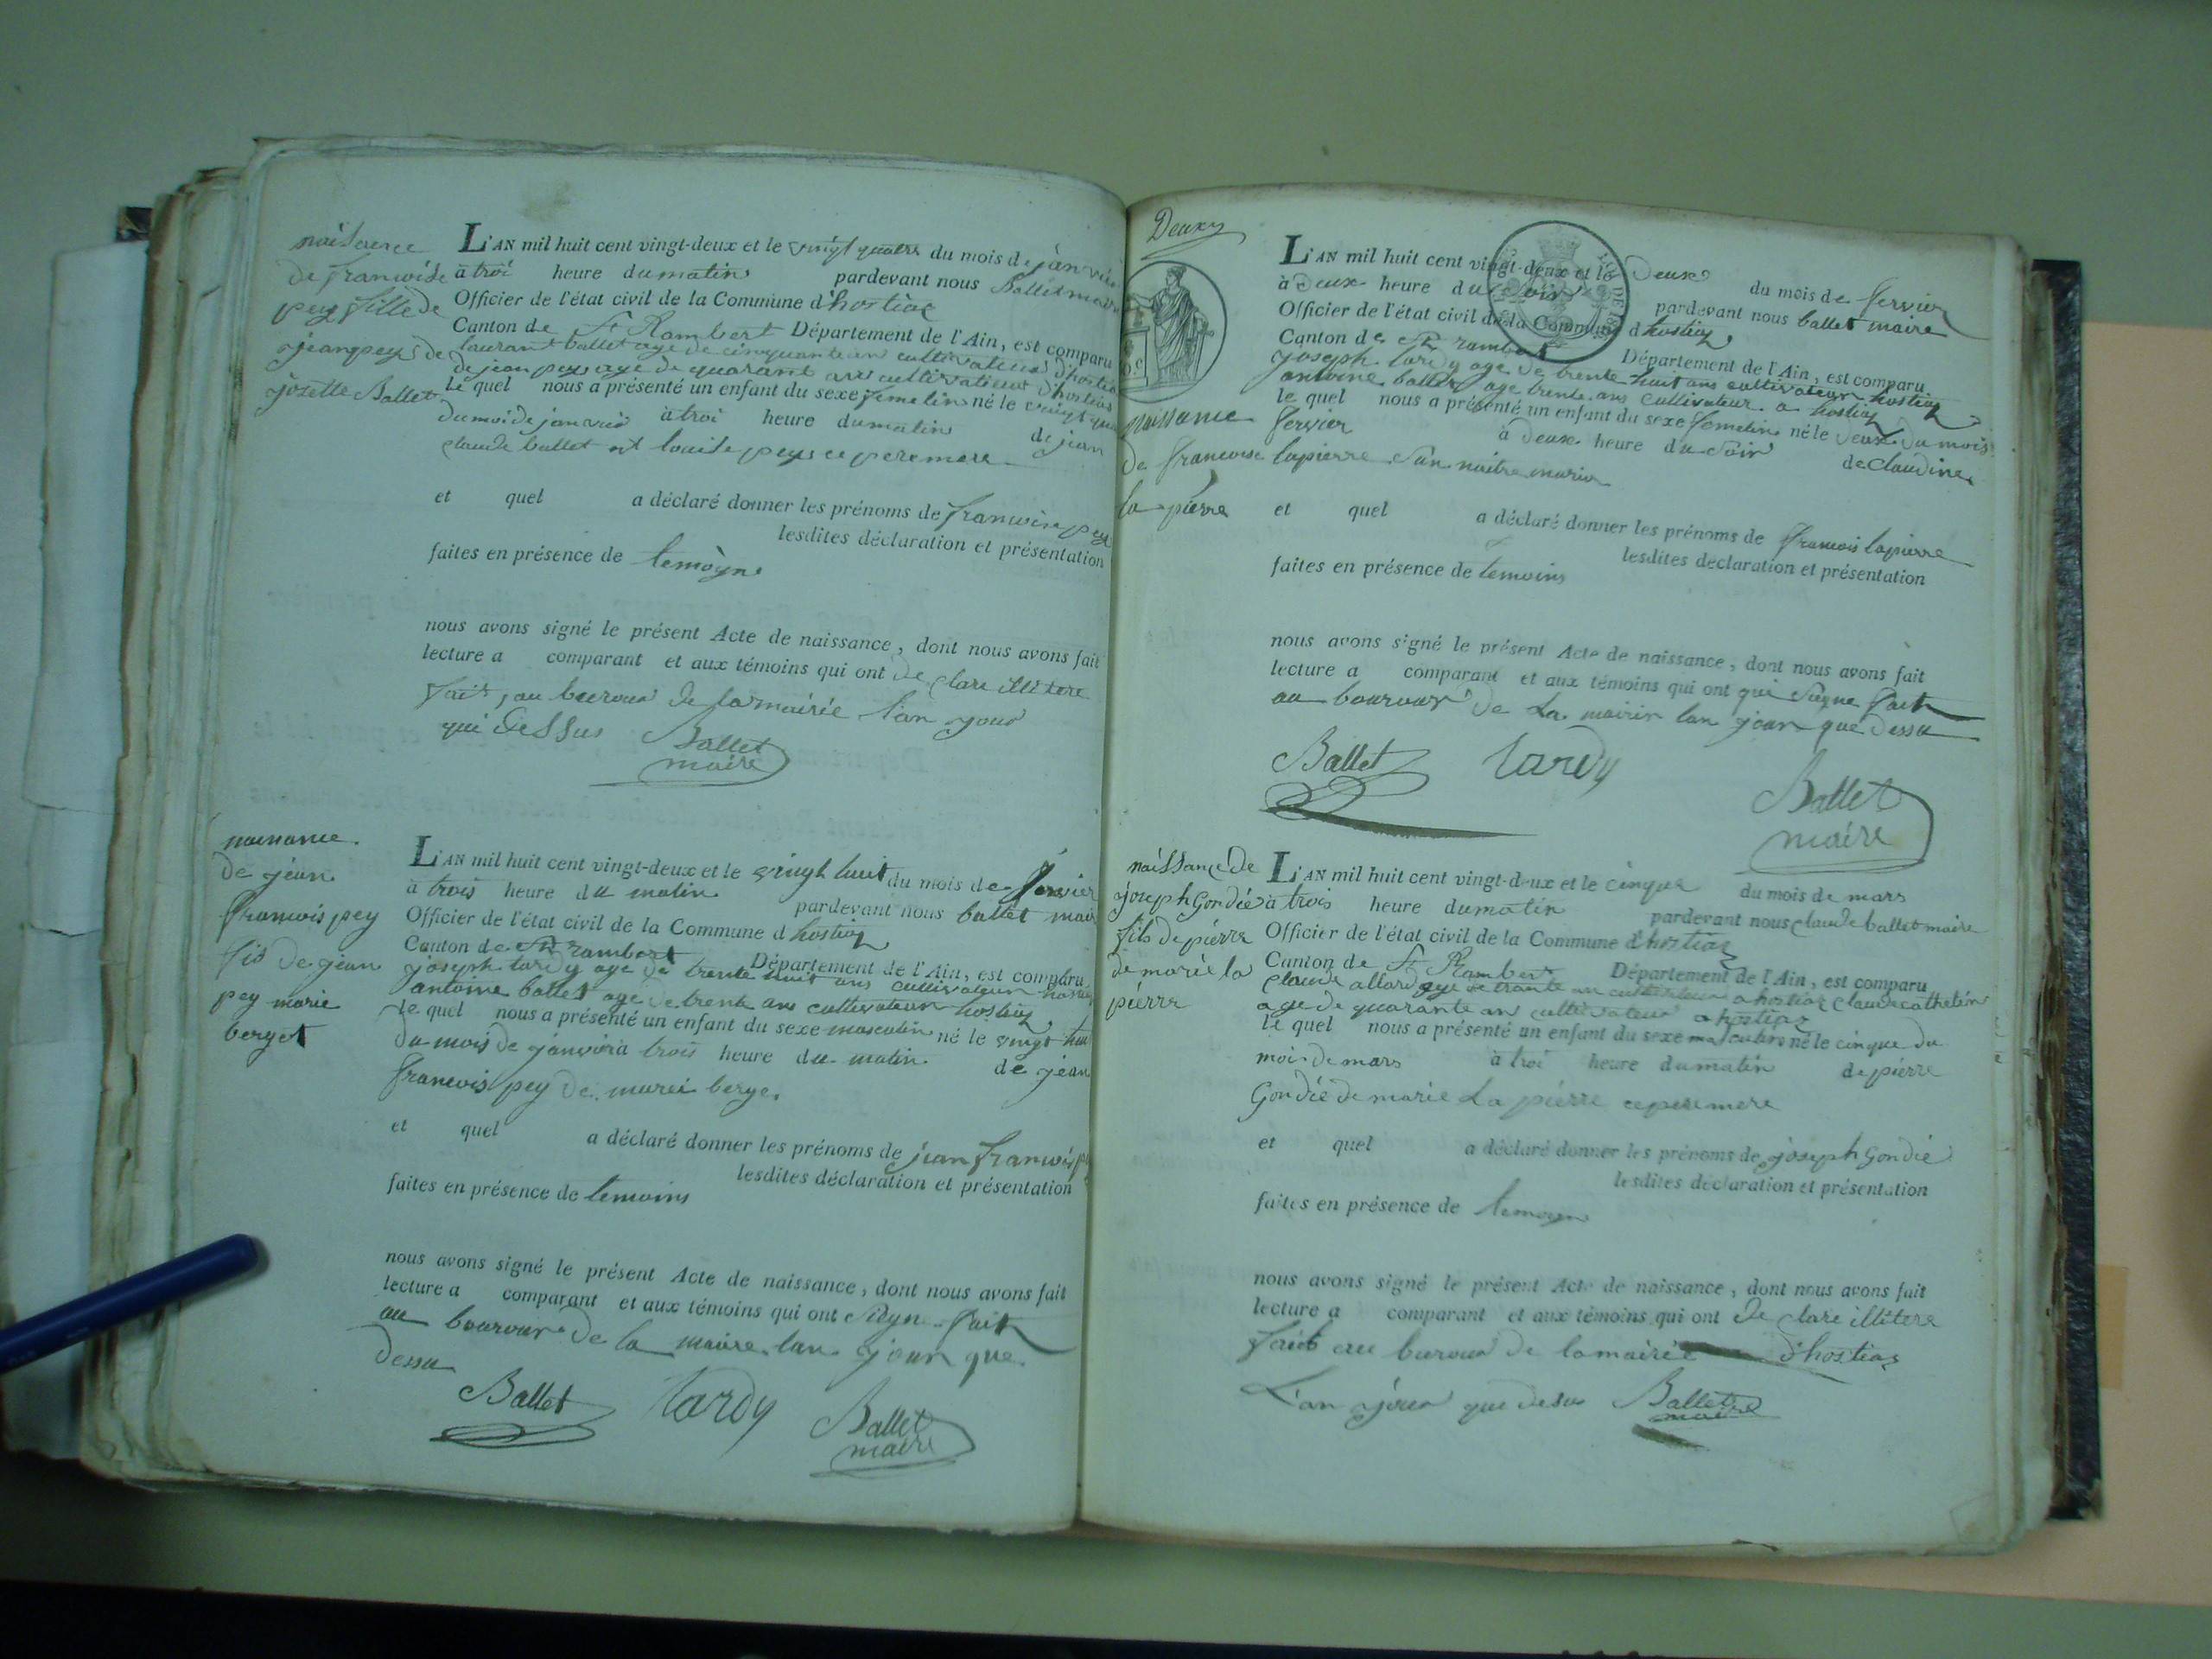 naisance
de francoise
pey fille de
jean pey de
josette Ballet
L'AN mil huit cent vingt-deux et le vingt quatre du mois de janvier
à troi heure du matin pardevant nous Ballet maire
Officier de l'état civil de la Commune d'hostiac
Canton de St Rambert Département de l'Ain, est comparu
laurant ballet age de cinquante an cultivateur d'hostiaz
de jean pey age de quarant ans cultivateur d'hostiaz
le quel nous a présenté un enfant du sexe femelin né le vingt quatre
du moi de janvier à troi heure du matin de jean
claude ballet et louise pey ce pere mere
et quel a déclaré donner les prénoms de francoise pey
lesdites déclaration et présentation
faites en présence de temoyns
nous avons signé le présent Acte de naissance, dont nous avons fait
lecture a comparant et aux témoins qui ont de clare illitere
fait au buroua de la mairie l'an jour
qui dessus Ballet
maire
naissance
de jean
francois pey
fis de jean
pey marie
berget
L'AN mil huit cent vingt-deux et le vingt huit du mois de
à trois heure du matin pardevant nous ballet maire
Officier de l'état civil de la Commune d hostiaz
Canton de St rambert Département de l'Ain, est comparu
joseph tardy age de trente huit ans cultivateur hostiaz
antoine ballet age de trente ans cultivateur hostiaz
le quel nous a présenté un enfant du sexe masculin né le vingt huit
du mois de janvier à trois heure du matin de jean
francois pey de marei berge
et quel a déclaré donner les prénoms de jean francois
lesdites déclaration et présentation
faites en présence de temoins
nous avons signé le présent Acte de naissance, dont nous avons fait
lecture a comparant et aux témoins qui ont signe fait
au bourour de la maire lan jour que
dessu
Ballet tardy Ballet
maire
Deuxy
L'AN mil huit cent vingt-deux et le deux du mois de fervier
à deux heure du soir pardevant nous ballet maire
Officier de l'état civil de la Commune d hostiaz
Canton de St rambert Département de l'Ain, est comparu
joseph tardy age de trente huit ans cultivateur hostiaz
antoine ballet age trente ans cultivateur a hostiaz
le quel nous a présenté un enfant du sexe femelin né le deux du mois
naissance
de francoise
la pierre
fervier à deux heure du soir de Claudine
lapierre san naitre marier
et quel a déclaré donner les prénoms de francois lapierre
lesdites déclaration et présentation
faites en présence de temoins
nous avons signé le présent Acte de naissance, dont nous avons fait
lecture a comparant et aux témoins qui ont qui signe fait
au bourour de la mairie lan jour que dessu
Ballet tardy
Ballet
maire
naissance de
joseph Gondié
fils de piérre
de marie la
piérre
L'AN mil huit cent vingt-deux et le cinque du mois de mars
à trois heure du matin pardevant nous claude ballet maire
Officier de l'état civil de la Commune d'hostiaz
Canton de St Rambert Département de l'Ain, est comparu
claude allard age de trante an cultivateur a hostiaz claude cathelin
age de quarante an cultivateur a hostiaz
le quel nous a présenté un enfant du sexe masculin né le cinque du
moi de mars à troi heure du matin de piérre
Gondié de marie La piérre ce pere mere
et quel a déclaré donner les prénoms de joseph Gondié
lesdites déclaration et présentation
faites en présence de temoyns
nous avons signé le présent Acte de naissance, dont nous avons fait
lecture a comparant et aux témoins qui ont de clare illitere
fait au buroua de la mairié d'hostiaz
L'an jour que desu Ballet
maire